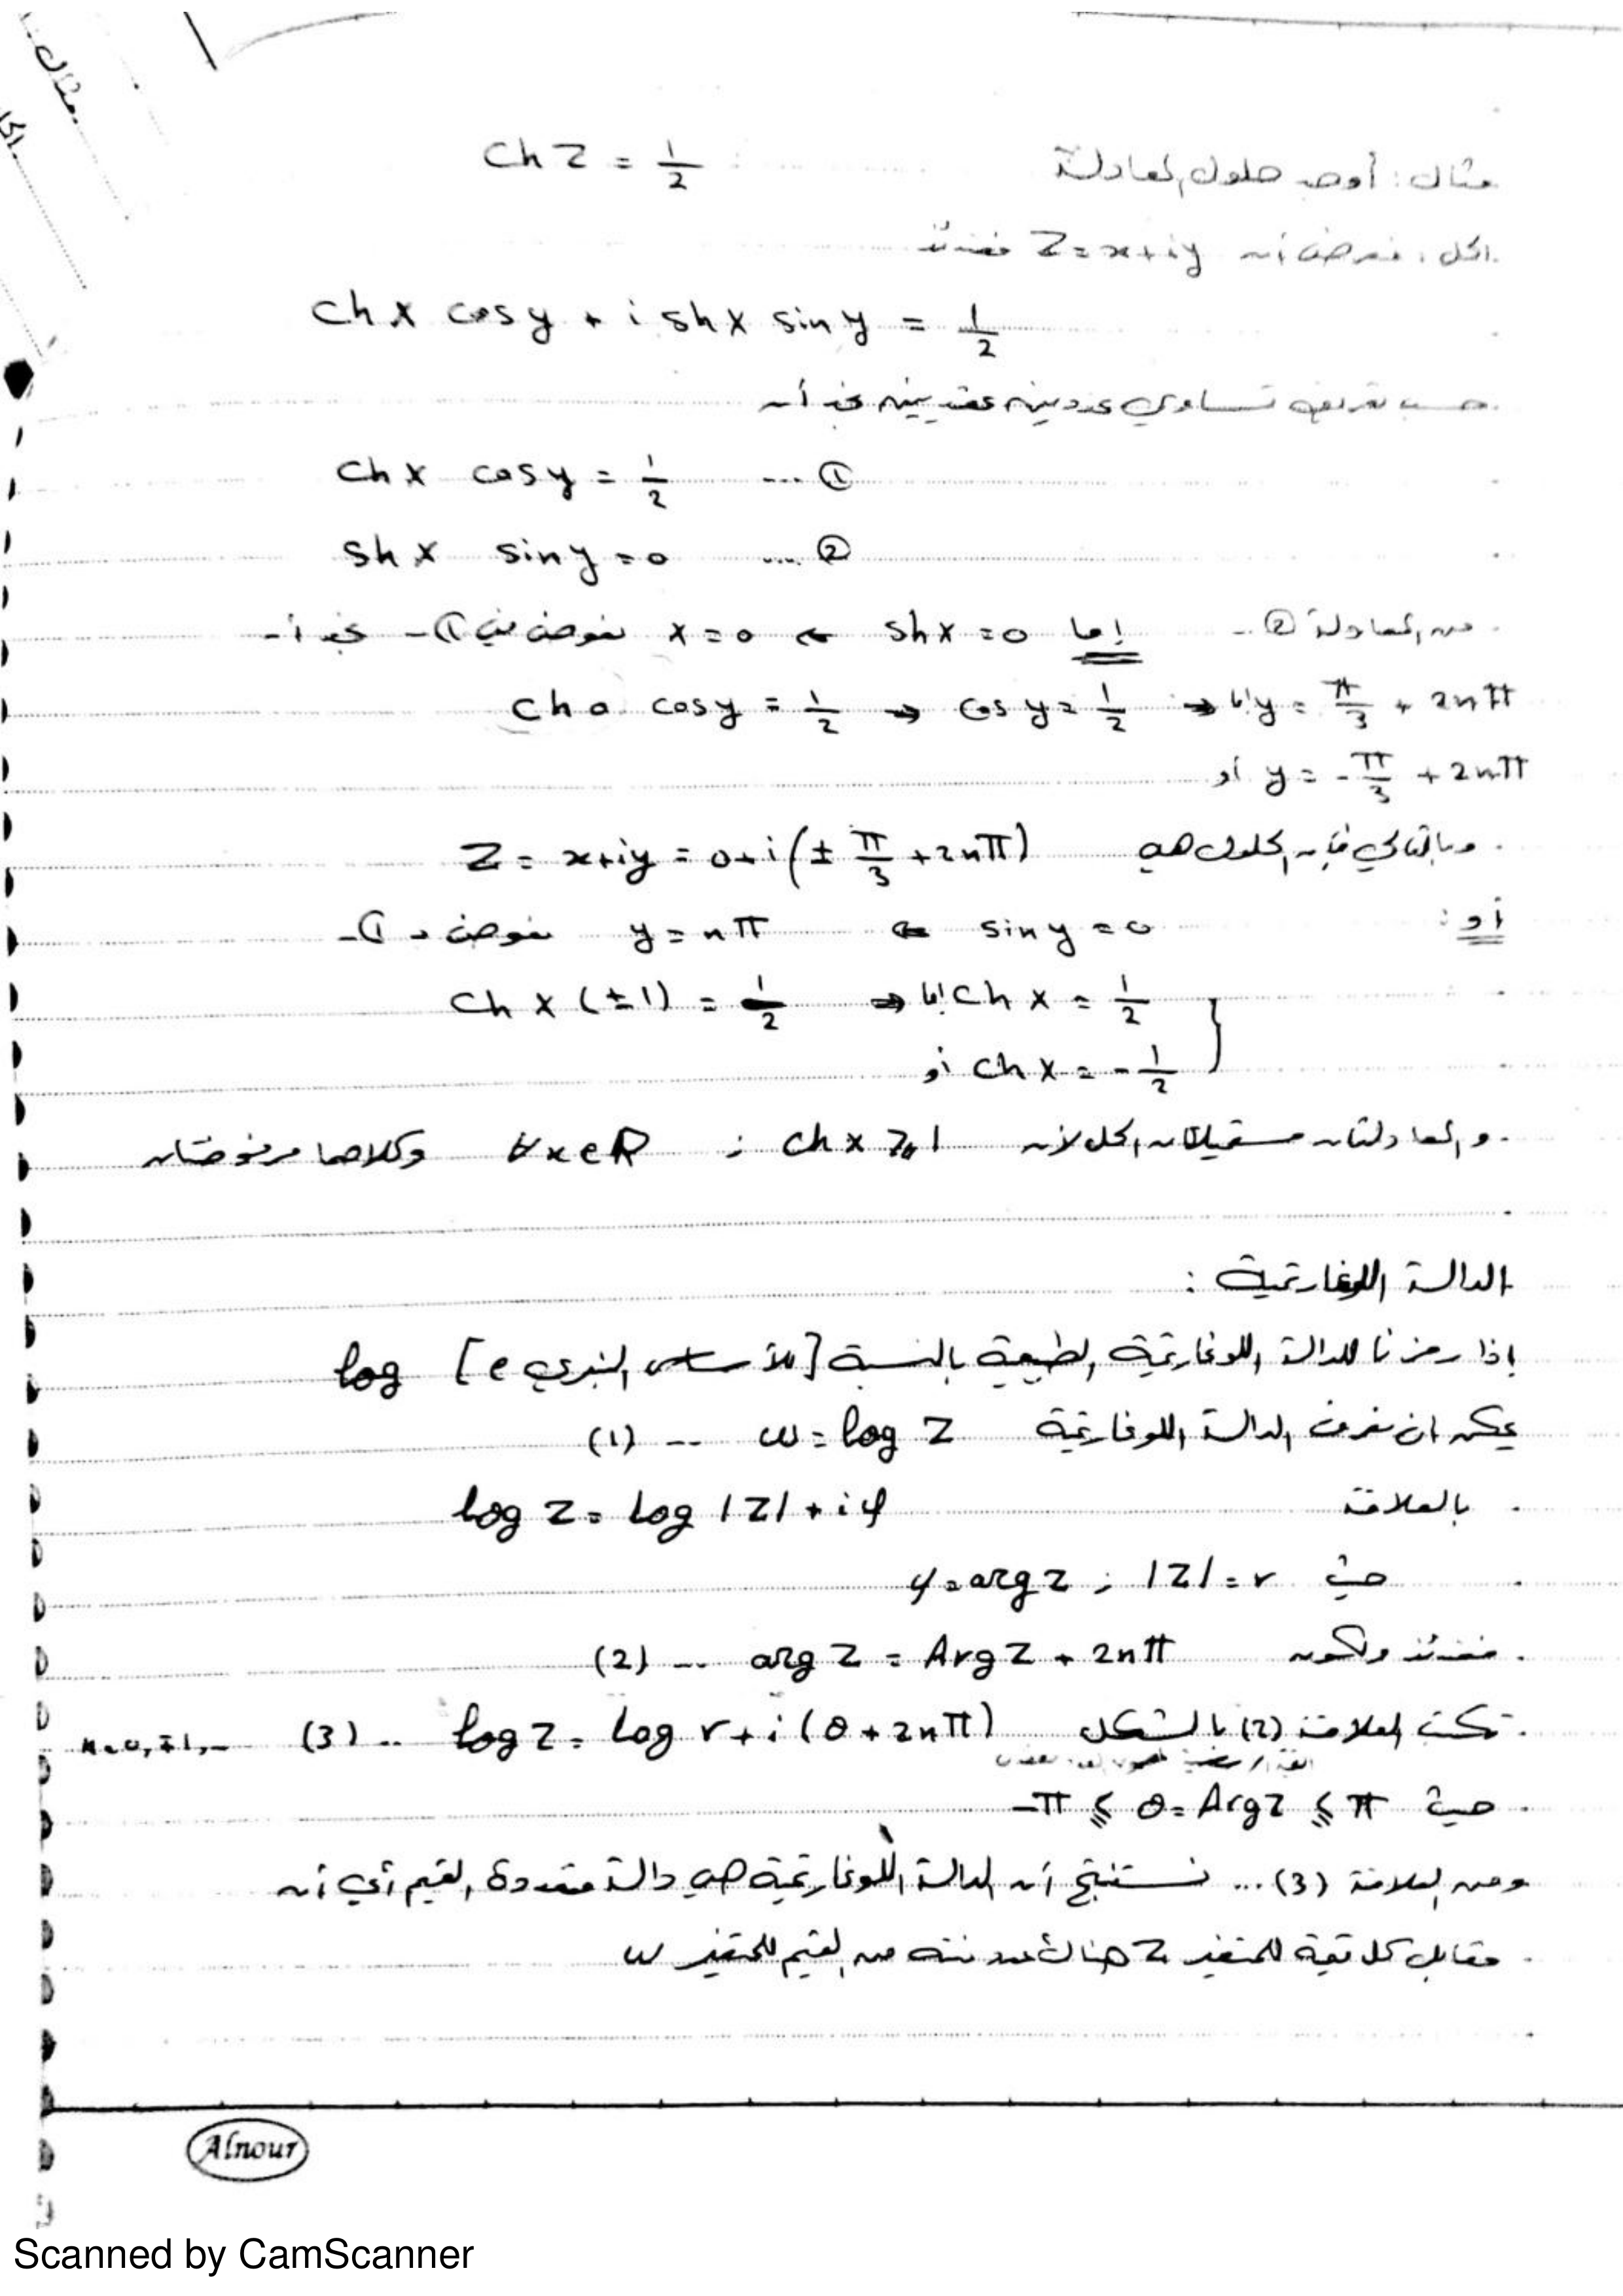 مثال
الحل
مثال: أوجد حلول المعادلة Ch Z = 1/2
الحل: نفرض أن Z = x+iy فعندئذ
Ch x cos y + i sh x sin y = 1/2
حسب تعريف تساوي عددين عقديين نجد أن
Ch x cos y = 1/2 ... ①
Sh x sin y = 0 ... ②
من المعادلة ② - إما sh x = 0 ⇐ x = 0 نعوض في ① - نجد أن
Ch 0 cos y = 1/2 → cos y = 1/2 → إما y = π/3 + 2nπ
أو y = -π/3 + 2nπ
وبالتالي فإن الحلول هي Z = x+iy = 0+i(± π/3 + 2nπ)
أو: sin y = 0 ⇐ y = nπ نعوض في ① -
Ch x (±1) = 1/2 ⇒ إما Ch x = 1/2
أو Ch x = -1/2
والمعادلتان مستحيلتان الحل لأن Ch x ⩾ 1 ; ∀x∈R وكلاهما مرفوضتان
الدالة اللوغارتمية :
إذا رمزنا للدالة اللوغارتمية الطبيعية بالنسبة [للأساس النيبري e] log
يمكن ان نعرف الدالة اللوغارتمية w = log Z ... (1)
بالعلاقة log Z = log |Z| + iφ
حيث |Z| = r ; φ = arg z
فعندئذ ولكون arg Z = Arg Z + 2nπ ... (2)
تكتب العلاقة (2) بالشكل log Z = log r + i(θ + 2nπ) ... (3) n=0,±1,...
حيث -π ⩽ θ = Arg Z ⩽ π
ومن العلاقة (3)... نستنتج أن الدالة اللوغارتمية هي دالة متعددة القيم أي أن
مقابل كل قيمة للمتغير Z هناك عدد منته من القيم للمتغير w
Alnour
Scanned by CamScanner